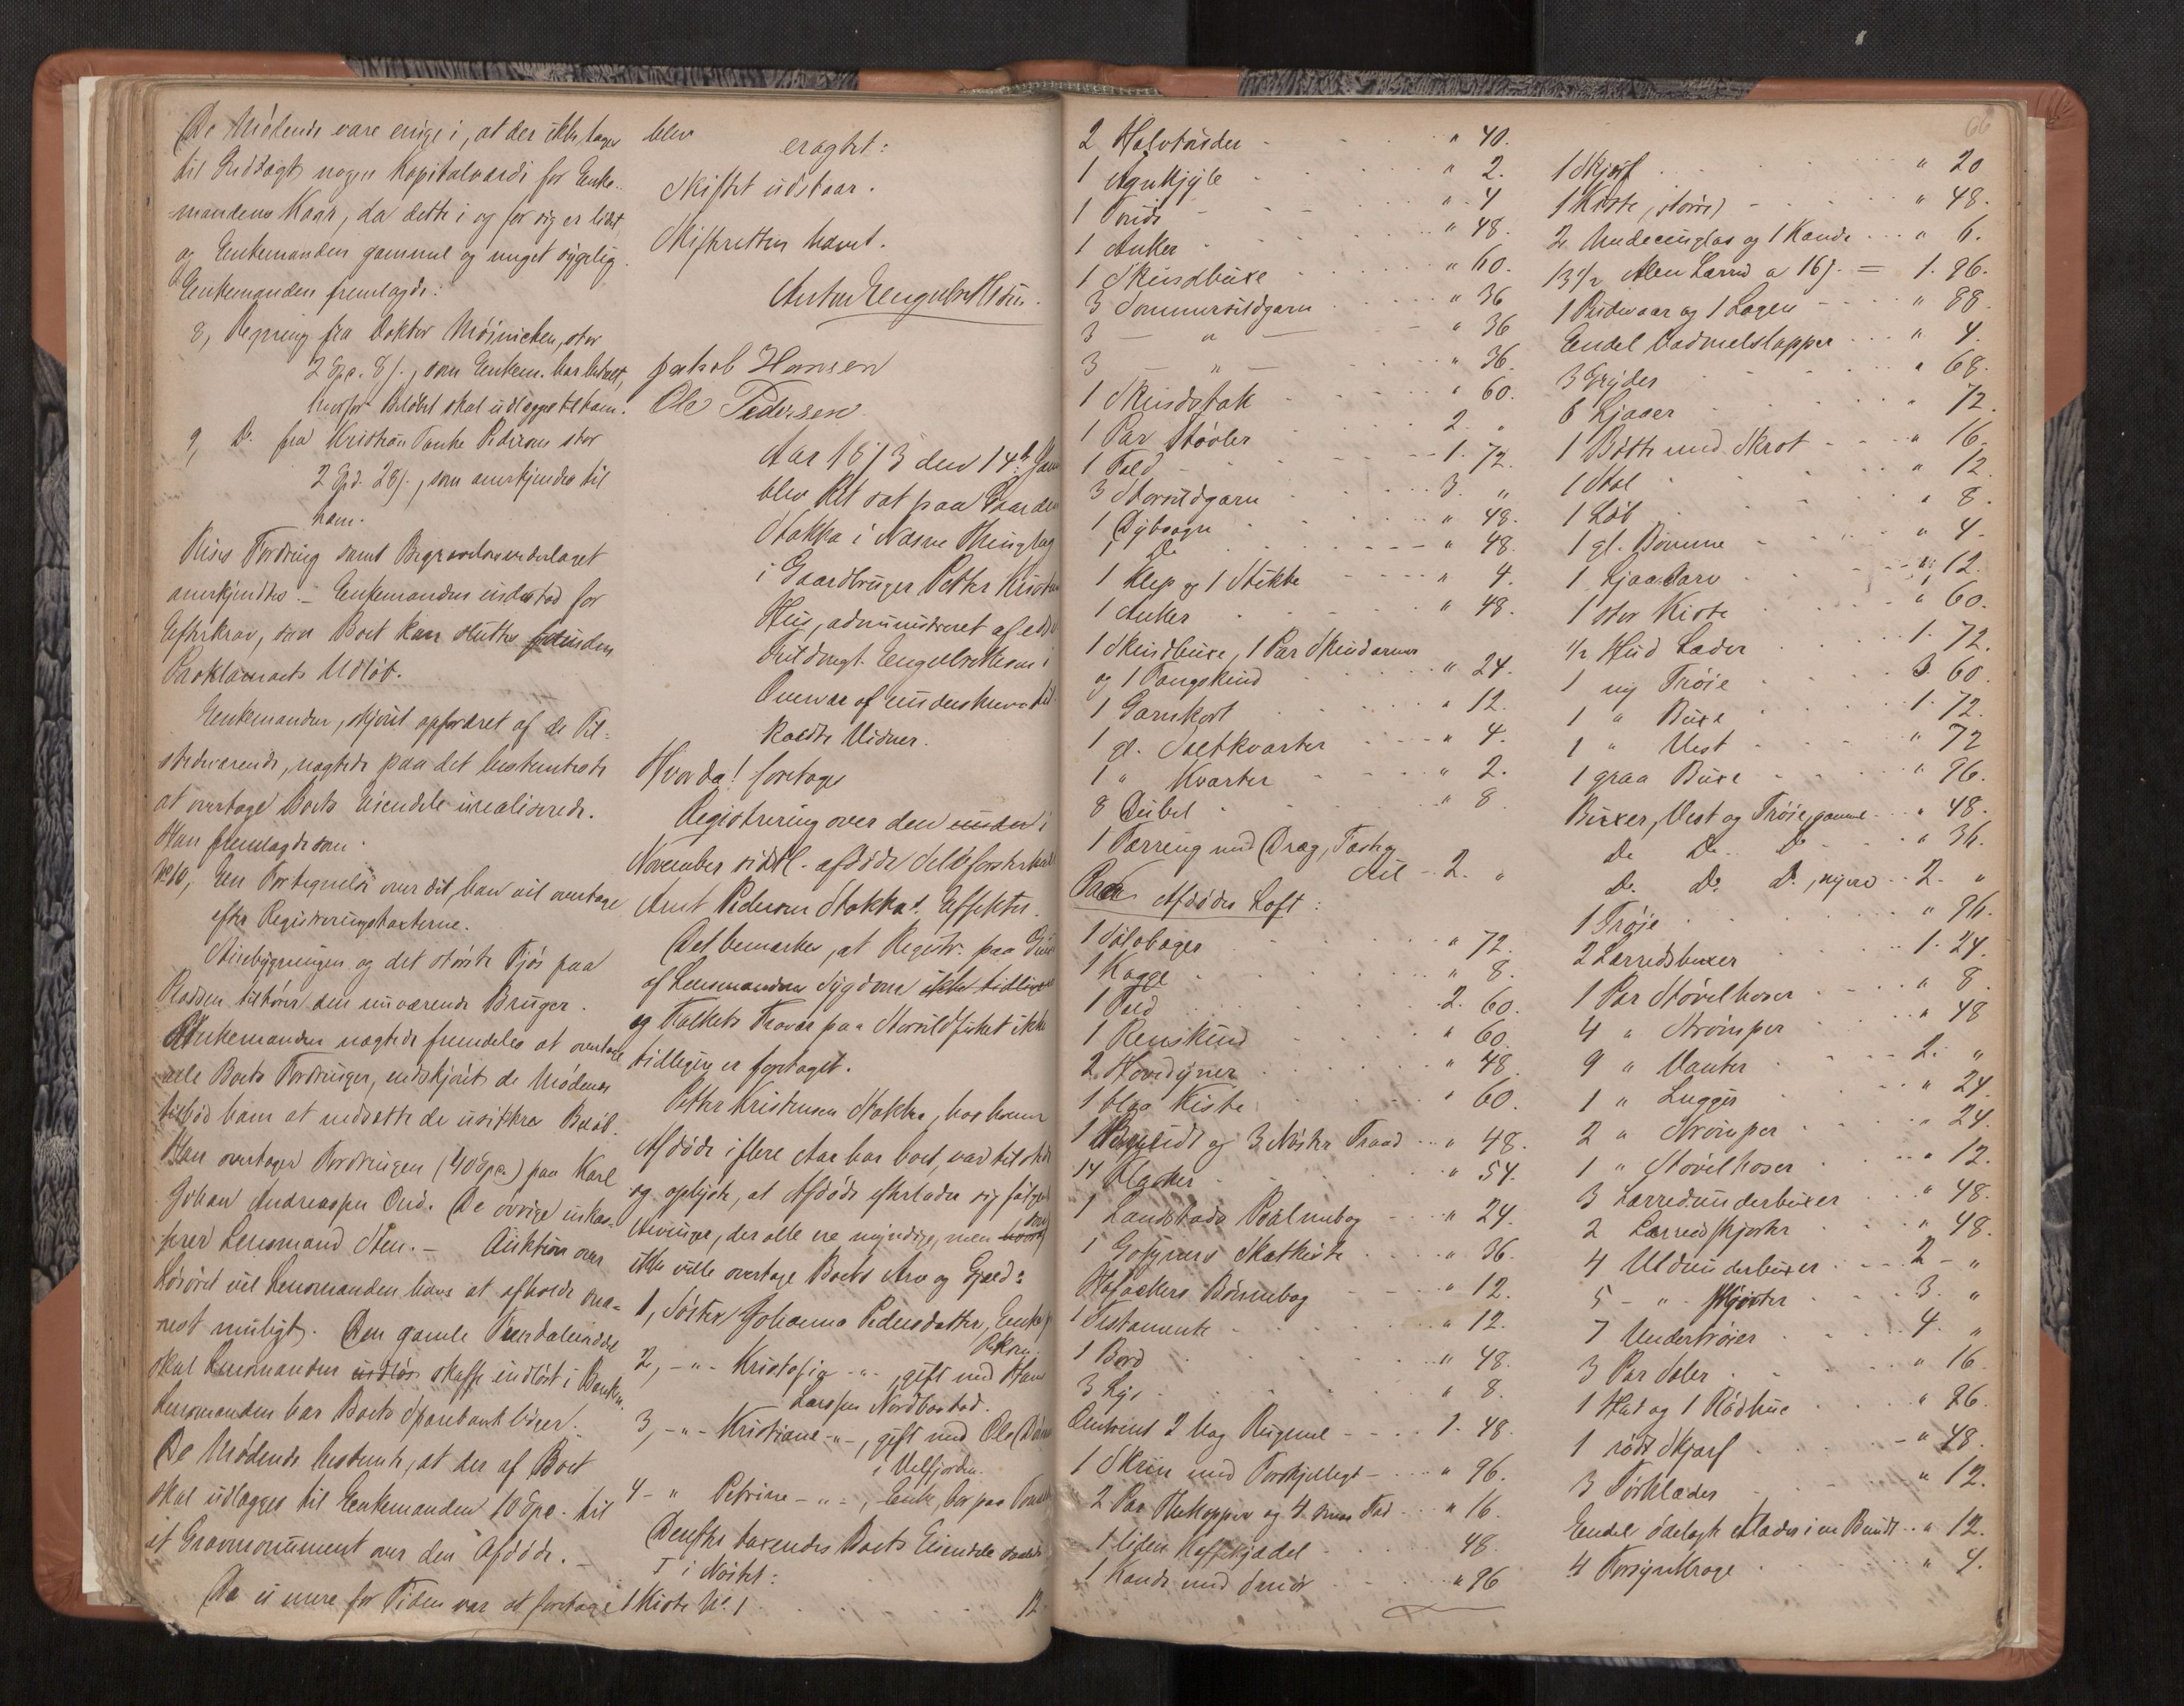 De Mødende vare enige i, at der ikke tages
til Indtægt nogen Kapitalværdi for Enke-
mandens Kaar, da dette i og for sig er lidet,
og Enkemanden gammel og meget sygelig.
Enkemanden fremlagde:
8, Regning fra Doktor Møinichen, stor
2 Spd. 8 s., som Enkem. har betalt,
hvorfor Beløbet skal udlægges til ham.
9, Do. fra Kristian Tanke Pedersen stor
2 Spd. 28 s., som anerkjendes til
ham.
Fordring samt Begravelsesvederlaget
anerkjendtes. – Enkemanden indestod for
Efterkrav, saa Boet kan sluttes forinden
Proklamaets Udløb.
Enkemanden, skjønt opfordret af de Til-
stedeværende, nægtede paa det bestemteste
at overtage Boets Eiendele urealiserede.
Han fremlagde som
No 10, En Fortegnelse over det, han vil overtage
efter Registreringstaxterne.
og det største Fjøs paa
Pladsen tilhører den nuværende Bruger.
Enkemanden nægtede fremdeles at overtage
alle Boets Fordringer, endskjønt de Mødende
tilbød ham at nedsætte de usikkre Beløb.
Han overtager Fordringen (40 Spd) paa Karl
Johan Andreassen De øvrige inkas-
serer Lensmand Sten. – Auktion over
Løsøret vil Lensmanden have at afholde sna-
rest muligt. Den gamle Femdalerseddel
skal Lensmanden skaffe indløst i Banken.
Lensmanden har Boets Sparebankbøger.
De Mødende bestemte, at der af Boet
skal udlægges til Enkemanden 10 Spd. til
et Gravmonument over den Afdøde. –
Da ei mere for Tiden var at foretage
blev
eragtet:
Skiftet udstaar.
Skifteretten hævet.
Anton Engelbrethsen.
Jakob Hansen
Ole Pedersen
Aar 1873 den 14de Jan
blev Ret sat paa Gaarden
Stokka i Næsne Thinglag
i Gaardbruger Petter Kristen
Hus, administreret af edsv
Fuldmgt. Engelbrethsen i
Overvær af underskrevne til-
kaldte Vidner.
Hvorda! foretoges
Registrering over den i
November sidstl. afdøde
Arnt Pedersen Stokkas Effekter.
Det bemærkes, at Registr. paa Grund
af Lensmandens Sygdom ikke tidligere
og Folkets Fravær paa Storsildfisket ikke
tidligere er foretaget.
Petter Kristensen Stokka, hos hvem
Afdøde i flere Aar har boet, var tilstede
og oplyste, at Afdøde efterlader sig følgende
Arvinger, der alle ere myndige, men
ikke ville overtage Boets Arv og Gjæld:
1, Søster Johanna Pedersdatter, Enke,
2, –"– Kristofia –"–, gift med Hans
Larssen Nordbostad.
3, –"– Kristiane –"–, gift med Ole
i Velfjorden.
4 – " Petrine – " –, Enke, bor paa
Derefter taxeredes Boets Eiendele
I i Nøstet:
1 Kiste No 1 12
2 Halvtønder " 40.
1 " 2.
1 " 4
1 Anker " 48.
1 Skindbuxe " 60.
3 Sommersildgarn " 36
3 — " — " 36
3 — " — " 36.
1 Skindstak " 60.
1 Par Støvler 2 "
1 Fæld 1. 72.
3 Storsildgarn 3. "
1 Dybsagn " 48.
1 Do " 48.
1 Klep og 1 Stikke " 4.
1 Anker " 48.
1 Skindbuxe, 1 Par Skindærmer
og 1 Fangskind " 24.
1 Garnkort " 12.
1 gl. Saltkvarter " 4.
1 " Kvarter " 2.
8 Dubel " 8
1 Færing med Dræg,
Seil 2. "
Paa Afdødes Loft:
1 Sølvbæger " 72.
1 Kagge " 8.
1 Fæld 2. 60.
1 Renskind " 60.
2 Hovedyner " 48.
1 blaa Kiste " 60.
1 og 3 Nøster Traad " 48.
14 Klæder " 54.
1 Landstads Psalmebog " 24.
1 Gosners Skatkiste " 36.
Hofackers Bønnebog " 12.
1 Testamente " 12.
1 Bord " 48.
3 Lys " 8.
Omtrent 2 Vog Rugmel 1. 48.
1 Skrin med Forskjelligt " 96.
2 Par Thekopper og 4 smaa Fad " 16.
1 liden Kaffekjædel 48.
1 Kande med Smør " 96
66
1 Skjærf " 20
1 Kiste (større) " 48.
2 og 1 Kande " 6.
13 1/2 Alen Lærred a 16 s. = 1. 96.
1 Pudevaar og 1 Lagen " 88
Endel Vadmelslapper " 4.
3 Gryder " 68.
6 Ljaaer " 72.
1 Bøtte med Skrot " 16.
1 Stol " 12
1 Løb " 8.
1 gl. Bomme " 4.
1 Ljaa " 12.
1 stor Kiste " 60.
1/2 Hud Læder 1. 72.
1 ny Trøie 3. 60.
1 " Buxe 1. 72.
1 " Vest " 72
1 graa Buxe " 96.
Buxer, Vest og Trøie, gamle " 48.
Do Do Do " 36.
Do. Do. Do., nyere 2. "
1 Trøie " 96.
2 Lærredsbuxer 1. 24.
1 Par Støvelhoser " 8.
4 " Strømper " 48
9 " Vanter 2. "
1 " Lugger " 24.
2 " Strømper " 24.
1 " Støvelhoser " 12.
3 Lærredsunderbuxer " 48.
2 Lærredsskjorter " 48.
4 Uldunderbuxer 2 – "
5 – " – Skjorter 3. "
7 Undertrøier 4. "
3 Par Saler " 16
1 Hat og 1 Rødhue " 96.
1 rødt Skjærf " 48.
3 Tørklæder " 12.
Endel ødelagte Klæder i en Bundt " 12.
4 " 4.